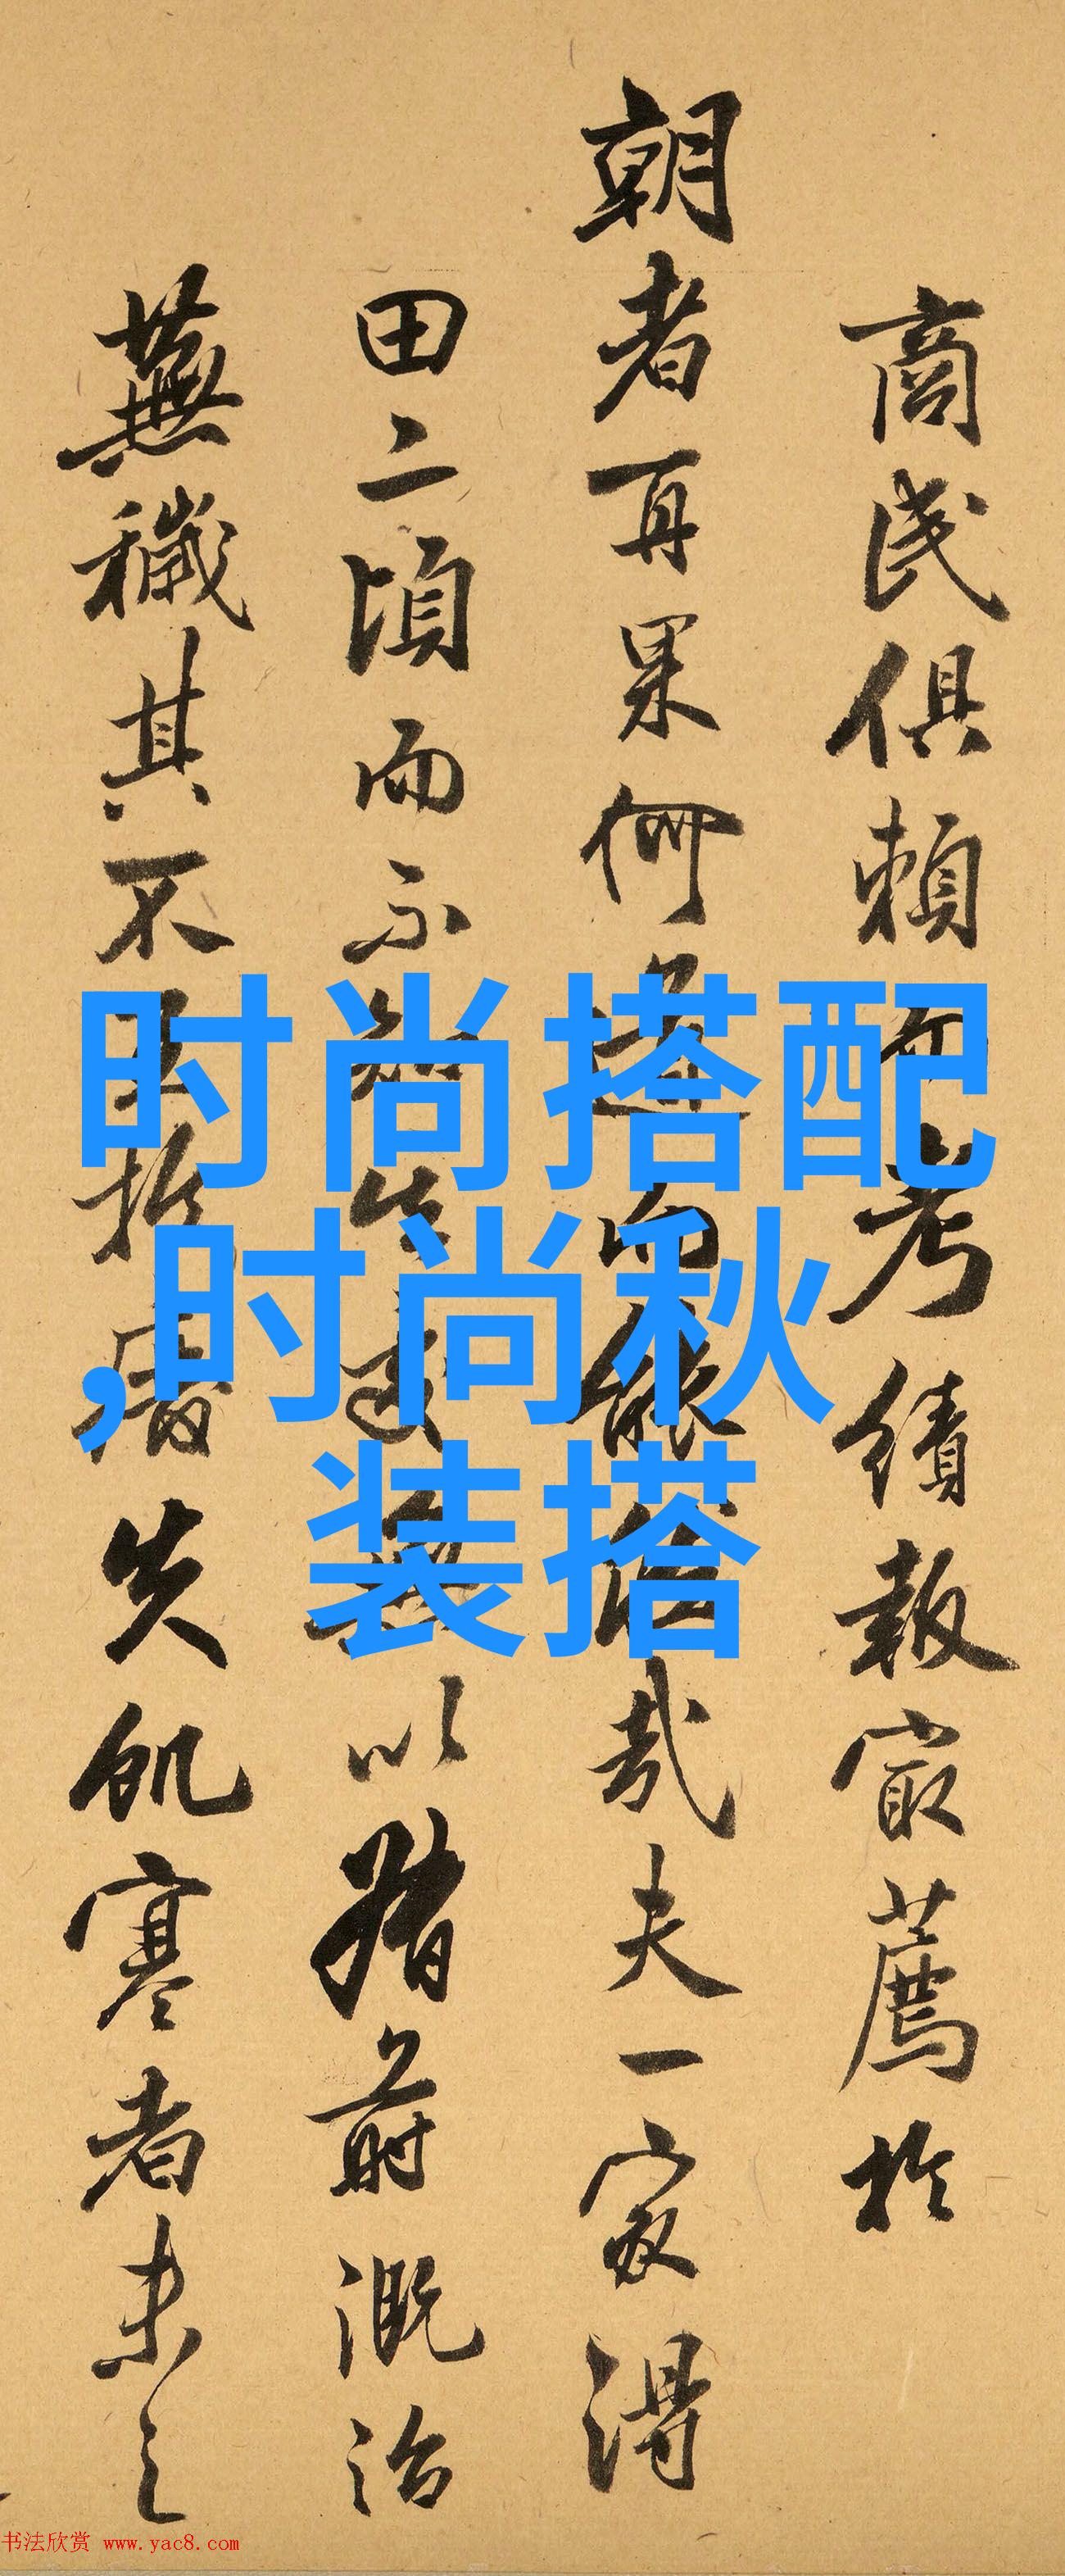 商民俱賴考績報最薦於
朝者再果何道而能哉夫一家得
田二頃而不以前溉治
蕪穢其不至於廢失飢寒者未之
时尚搭配
,时尚秋
装搭
书法欣赏 www.yac8.com